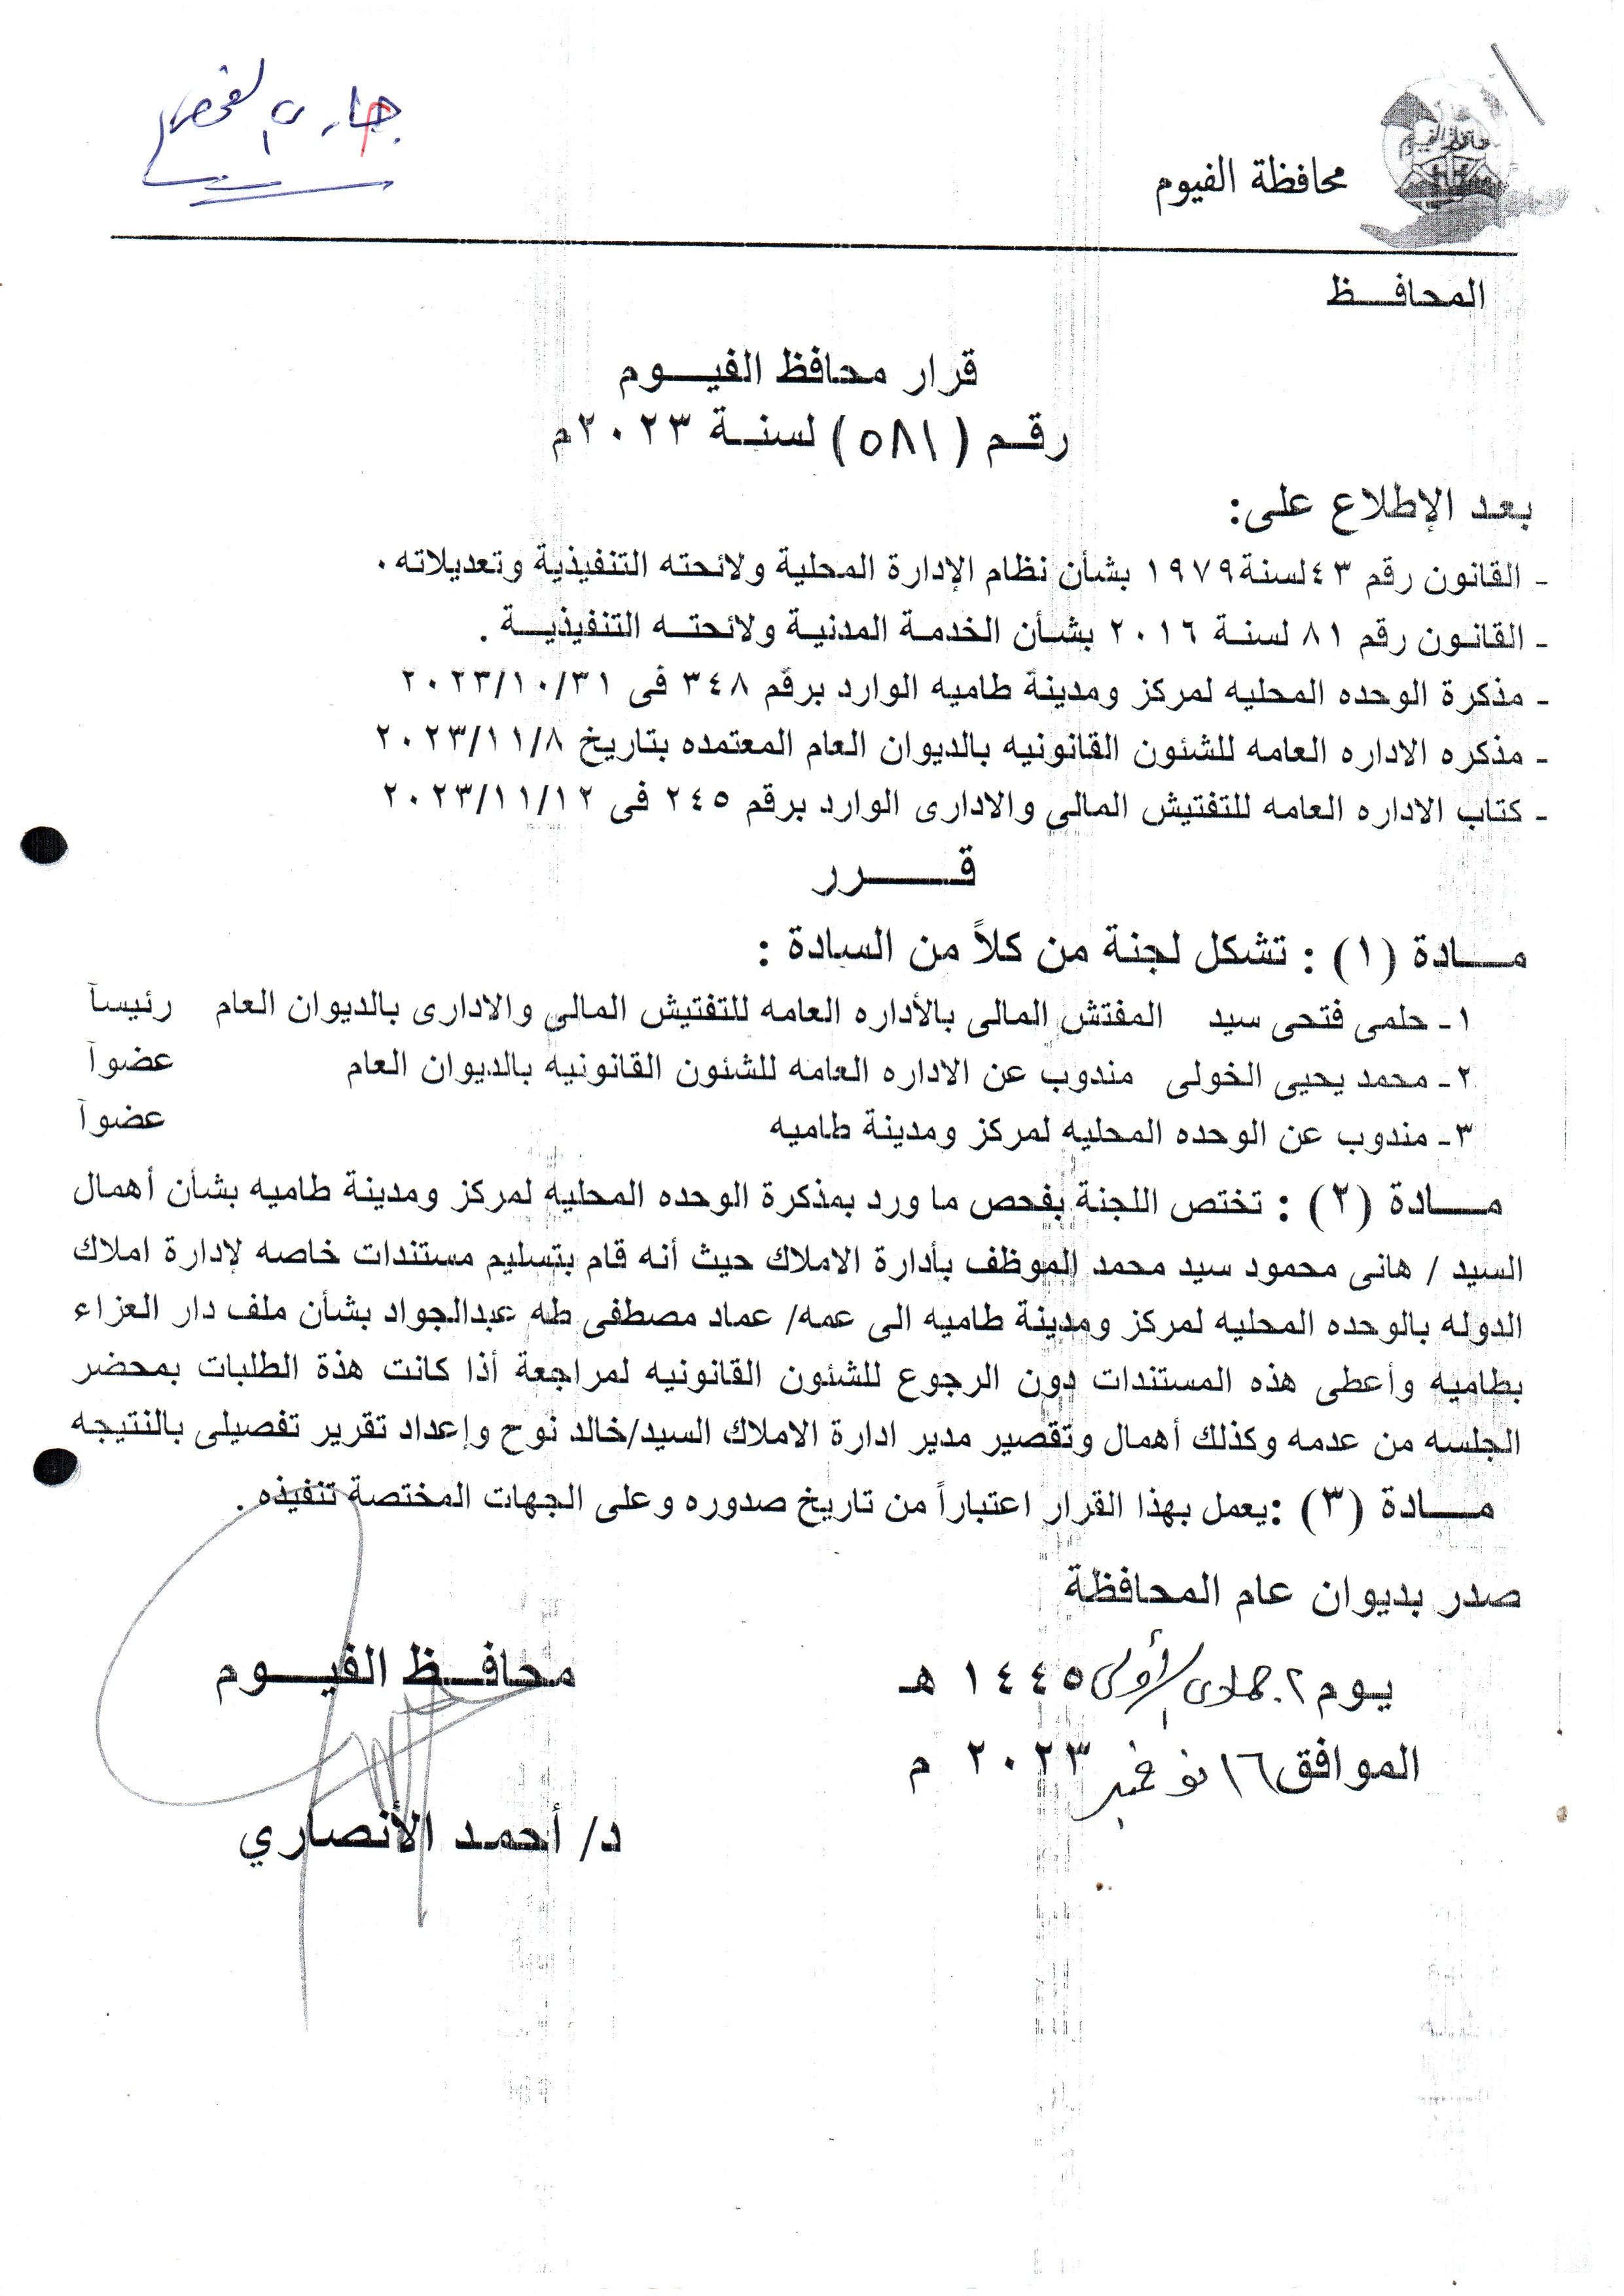 جارى الفحص
محافظة الفيوم
محافظة الفيوم
المحافـــظ
قرار محافظ الفيـــوم
رقـم (٥٨١) لسنـة ٢٠٢٣م
بعد الإطلاع على:
- القانون رقم ٤٣لسنة١٩٧٩ بشأن نظام الإدارة المحلية ولائحته التنفيذية وتعديلاته.
- القانون رقم ٨١ لسنة ٢٠١٦ بشأن الخدمة المدنية ولائحته التنفيذية .
- مذكرة الوحده المحليه لمركز ومدينة طاميه الوارد برقم ٣٤٨ فى ٢٠٢٣/١٠/٣١
- مذكره الاداره العامه للشئون القانونيه بالديوان العام المعتمده بتاريخ ٢٠٢٣/١١/٨
- كتاب الاداره العامه للتفتيش المالى والادارى الوارد برقم ٢٤٥ فى ٢٠٢٣/١١/١٢
قـــــرر
مـــادة (١) : تشكل لجنة من كلاً من السادة :
١- حلمى فتحى سيد المفتش المالى بالأداره العامه للتفتيش المالى والادارى بالديوان العام رئيسآ
٢- محمد يحيى الخولى مندوب عن الاداره العامه للشئون القانونيه بالديوان العام عضوآ
٣- مندوب عن الوحده المحليه لمركز ومدينة طاميه عضوآ
مـــادة (٢) : تختص اللجنة بفحص ما ورد بمذكرة الوحده المحليه لمركز ومدينة طاميه بشأن أهمال
السيد / هانى محمود سيد محمد الموظف بأدارة الاملاك حيث أنه قام بتسليم مستندات خاصه لإدارة املاك
الدوله بالوحده المحليه لمركز ومدينة طاميه الى عمه/ عماد مصطفى طه عبدالجواد بشأن ملف دار العزاء
بطاميه وأعطى هذه المستندات دون الرجوع للشئون القانونيه لمراجعة أذا كانت هذة الطلبات بمحضر
الجلسه من عدمه وكذلك أهمال وتقصير مدير ادارة الاملاك السيد/خالد نوح وإعداد تقرير تفصيلى بالنتيجه
مـــادة (٣) :يعمل بهذا القرار اعتباراً من تاريخ صدوره وعلى الجهات المختصة تنفيذه .
صدر بديوان عام المحافظة
يـوم ٢ جمادى الأولى ١٤٤٥ هـ
الموافق ١٦ نوفمبر ٢٠٢٣ م
محافـظ الفيـــوم
د/ أحمد الأنصاري